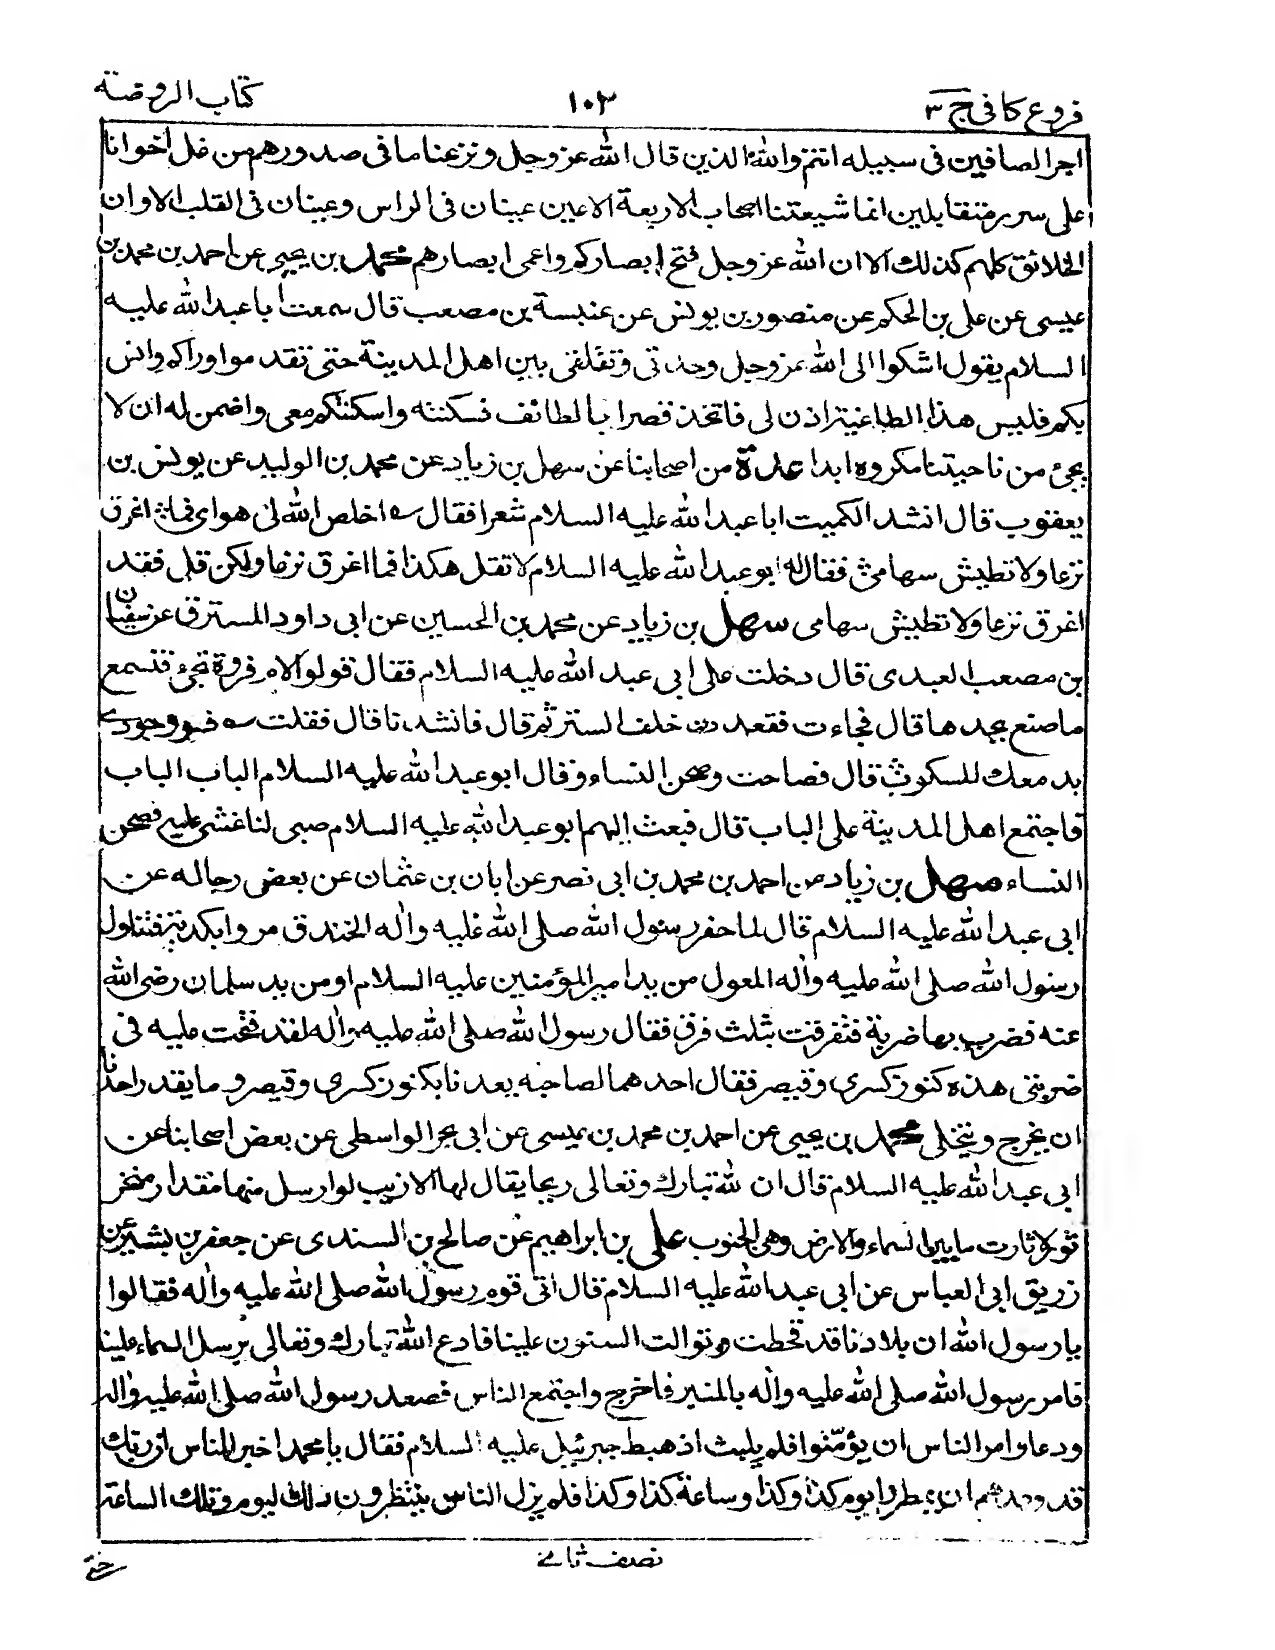 فروع كافى ج ٣
١٠٣
كتاب الروضة
اجر الصافين فى سبيله انتم والله الذين قال الله عز وجل ونزعنا ما فى صدورهم من غل اخوانا
على سرر متقابلين انما شيعتنا اصحاب الاربعة الاعين عينان فى الراس وعينان فى القلب الا وان
الخلائق كلهم كذلك الا ان الله عز وجل فتح ابصاركم واعمى ابصارهم محمد بن يحيى عن احمد بن محمد بن
عيسى عن على بن الحكم عن منصور بن يونس عن عنبسة بن مصعب قال سمعت ابا عبد الله عليه
السلام يقول اشكوا الى الله عز وجل وحدتى وتقلقى بين اهل المدينة حتى تقدموا واراكم وانس
بكم فليس هذا الطاغية اذن لى فاتخذ قصرا بالطائف فسكنته واسكنتكم معى واضمن له ان لا
يجئ من ناحيتنا مكروه ابدا عدة من اصحابنا عن سهل بن زياد عن محمد بن الوليد عن يونس بن
يعقوب قال انشد الكميت ابا عبد الله عليه السلام شعرا فقال ؎ اخلص الله لى هواى فما اغرق
نزعا ولا تطيش سهامى فقال له ابو عبد الله عليه السلام لا تقل هكذا فما اغرق نزعا ولكن قل فقد
اغرق نزعا ولا تطيش سهامى سهل بن زياد عن محمد بن الحسين عن ابى داود المسترق عن سفيان
بن مصعب العبدى قال دخلت على ابى عبد الله عليه السلام فقال قولوا لام فروة تجئ فتسمع
ما صنع بجدها قال فجاءت فقعدت خلف الستر ثم قال فانشدنا قال فقلت ؎ فرو جودى
بدمعك المسكوب قال فصاحت وصحن النساء وقال ابو عبد الله عليه السلام الباب الباب
فاجتمع اهل المدينة على الباب قال فبعث اليهم ابو عبد الله عليه السلام صبى لنا غشى عليه فصحن
النساء سهل بن زياد عن احمد بن محمد بن ابى نصر عن ابان بن عثمان عن بعض رجاله عن
ابى عبد الله عليه السلام قال لما حفر رسول الله صلى الله عليه واله الخندق مروا بكدية فتناول
رسول الله صلى الله عليه واله المعول من يد امير المؤمنين عليه السلام او من يد سلمان رضى الله
عنه فضرب بها ضربة فتفرقت بثلث فرق فقال رسول الله صلى الله عليه واله لقد فتحت عليه فى
ضربتى هذه كنوز كسرى وقيصر فقال احدهما لصاحبه يعدنا بكنوز كسرى وقيصر وما يقدر احدنا
ان يخرج ويتخلى محمد بن يحيى عن احمد بن محمد بن عيسى عن ابى يحيى الواسطى عن بعض اصحابنا عن
ابى عبد الله عليه السلام قال ان لله تبارك وتعالى ريحا يقال لها الازيب لو ارسل منها مقدار منخر
ثور لاثارت ما بين السماء والارض وهى الجنوب على بن ابراهيم عن صالح بن السندى عن جعفر بن بشير عن
زريق ابى العباس عن ابى عبد الله عليه السلام قال اتى قوم رسول الله صلى الله عليه واله فقالوا
يا رسول الله ان بلادنا قد قحطت وتوالت السنون علينا فادع الله تبارك وتعالى يرسل السماء علينا
فامر رسول الله صلى الله عليه واله بالمنبر فاخرج واجتمع الناس فصعد رسول الله صلى الله عليه واله
ودعا وامر الناس ان يؤمنوا فلم يلبث اذ هبط جبرئيل عليه السلام فقال يا محمد اخبر الناس ان ربك
قد وعدهم ان يمطروا يوم كذا وكذا وساعة كذا وكذا فلم يزل الناس ينتظرون ذلك اليوم وتلك الساعة
نصف ثانى
حتى